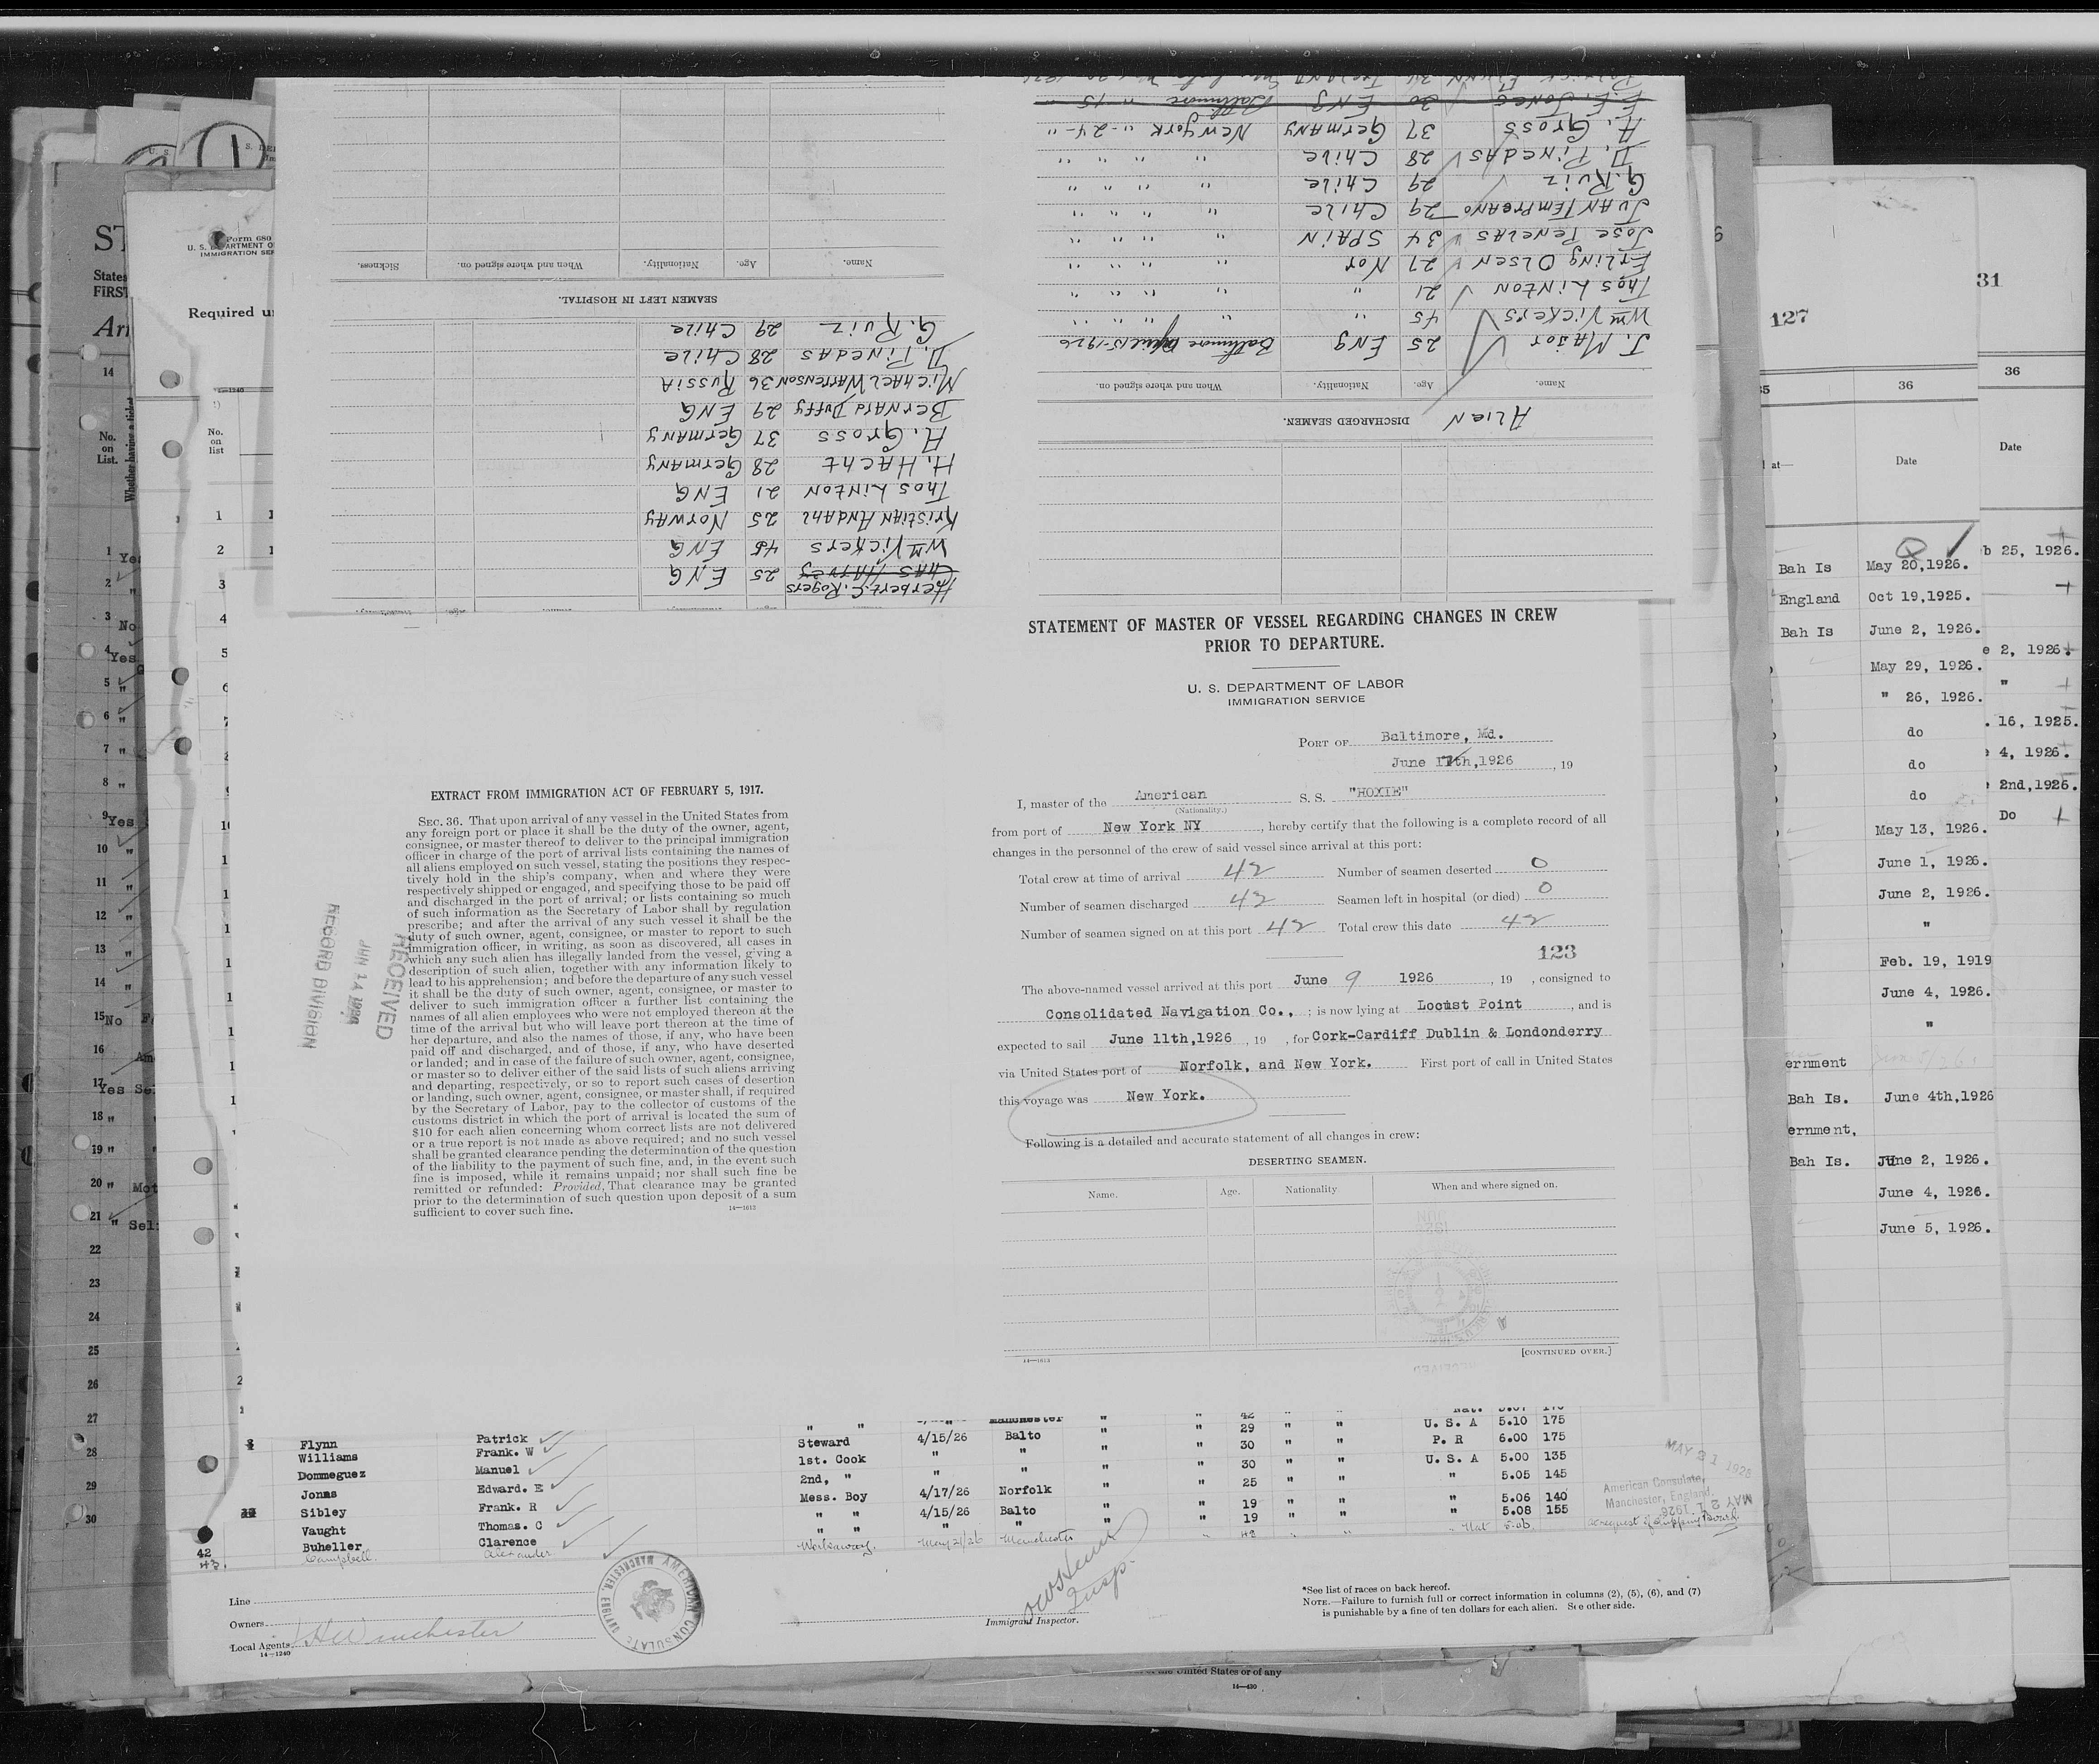 STATEMENT OF MASTER OF VESSEL REGARDING CHANGES IN CREW
PRIOR TO DEPARTURE.
U. S. DEPARTMENT OF LABOR
IMMIGRATION SERVICE
PORT OF Baltimore, Md.
June 11th,1926, 19
I, master of the American S. S. "HOXIE"
(Nationality.)
from port of New York NY, hereby certify that the following is a complete record of all
changes in the personnel of the crew of said vessel since arrival at this port:
Total crew at time of arrival 42 Number of seamen deserted 0
Number of seamen discharged 42 Seamen left in hospital (or died) 0
Number of seamen signed on at this port 42 Total crew this date 42
123
The above-named vessel arrived at this port June 9 1926, 19 , consigned to
Consolidated Navigation Co., ; is now lying at Locust Point, and is
expected to sail June 11th,1926, 19 , for Cork-Cardiff Dublin & Londonderry
via United States port of Norfolk, and New York. First port of call in United States
this voyage was New York.
Following is a detailed and accurate statement of all changes in crew:
DESERTING SEAMEN.
Name. Age. Nationality When and where signed on.
14—1613
[CONTINUED OVER.]
EXTRACT FROM IMMIGRATION ACT OF FEBRUARY 5, 1917.
SEC. 36. That upon arrival of any vessel in the United States from
any foreign port or place it shall be the duty of the owner, agent,
consignee, or master thereof to deliver to the principal immigration
officer in charge of the port of arrival lists containing the names of
all aliens employed on such vessel, stating the positions they respec-
tively hold in the ship's company, when and where they were
respectively shipped or engaged, and specifying those to be paid off
and discharged in the port of arrival; or lists containing so much
of such information as the Secretary of Labor shall by regulation
prescribe; and after the arrival of any such vessel it shall be the
duty of such owner, agent, consignee, or master to report to such
immigration officer, in writing, as soon as discovered, all cases in
which any such alien has illegally landed from the vessel, giving a
description of such alien, together with any information likely to
lead to his apprehension; and before the departure of any such vessel
it shall be the duty of such owner, agent, consignee, or master to
deliver to such immigration officer a further list containing the
names of all alien employees who were not employed thereon at the
time of the arrival but who will leave port thereon at the time of
her departure, and also the names of those, if any, who have been
paid off and discharged, and of those, if any, who have deserted
or landed; and in case of the failure of such owner, agent, consignee,
or master so to deliver either of the said lists of such aliens arriving
and departing, respectively, or so to report such cases of desertion
or landing, such owner, agent, consignee, or master shall, if required
by the Secretary of Labor, pay to the collector of customs of the
customs district in which the port of arrival is located the sum of
$10 for each alien concerning whom correct lists are not delivered
or a true report is not made as above required; and no such vessel
shall be granted clearance pending the determination of the question
of the liability to the payment of such fine, and, in the event such
fine is imposed, while it remains unpaid; nor shall such fine be
remitted or refunded: Provided, That clearance may be granted
prior to the determination of such question upon deposit of a sum
sufficient to cover such fine.
14—1613
RECEIVED
JUN 14 1926
RECORD DIVISION
Alien DISCHARGED SEAMEN.
Name. Age. Nationality. When and where signed on.
J. Major 25 Eng Baltimore April 15-1926
Wm Vickers 45 " " " " "
Thos Linton 21 " " " " "
Erling Olsen 27 Nor " " " "
Jose Penelas 34 Spain " " " "
Juan Tempreano 29 Chile " " " "
G. Ruiz 29 Chile " " " "
D. Pinedas 28 Chile " " " "
A. Gross 37 Germany New York " -24- "
E.E. Jones 30 Eng Baltimore " 15 "
Herbert C. Rogers
Chas Harvey 25 ENG
Wm Vickers 45 ENG
Kristian Andahl 25 Norway
Thos Linton 21 ENG
H. Hacht 28 Germany
A. Gross 37 Germany
Bernard Duffy 29 ENG
Michael Warrenson 36 Russia
D. Pinedas 28 Chile
G. Ruiz 29 Chile
SEAMEN LEFT IN HOSPITAL.
Name. Age. Nationality. When and where signed on. Sickness.
Form 680
Required
No. on list
No. on List.
Whether having a ticket
127
31
36
36
Date
Date
Bah Is May 20,1926.
England Oct 19,1925.
Bah Is June 2, 1926.
May 29, 1926.
" 26, 1926.
do
do
do
May 13, 1926.
June 1, 1926.
June 2, 1926.
"
Feb. 19, 1919
June 4, 1926.
"
ernment
Bah Is. June 4th,1926
ernment,
Bah Is. June 2, 1926.
June 4, 1926.
June 5, 1926.
b 25, 1926.
e 2, 1926.
"
. 16, 1925.
4, 1926.
2nd,1926.
Do
Flynn Patrick " " " Manchester " " 29 " " U. S. A 5.10 175
Williams Frank. W Steward 4/15/26 Balto " " 30 " " P. R 6.00 175
Dommeguez Manuel 1st. Cook " " " " 30 " " U. S. A 5.00 135
Jonas Edward. E 2nd, " " " " " 25 " " " 5.05 145
Sibley Frank. R Mess. Boy 4/17/26 Norfolk " " 19 " " " 5.06 140
Vaught Thomas. C " " 4/15/26 Balto " " 19 " " " 5.08 155
42 Buheller Clarence " " " "
43. Campbell Alexander Workaway. May 21/26 Manchester
MAY 21 1926
American Consulate,
Manchester, England.
MAY 21 1926
at request of Shipping Board.
Line
Owners
Local Agents
14—1240
AMERICAN CONSULATE MANCHESTER, ENGLAND
Insp.
Immigrant Inspector.
*See list of races on back hereof.
NOTE.—Failure to furnish full or correct information in columns (2), (5), (6), and (7)
is punishable by a fine of ten dollars for each alien. See other side.
the United States or of any
14—430